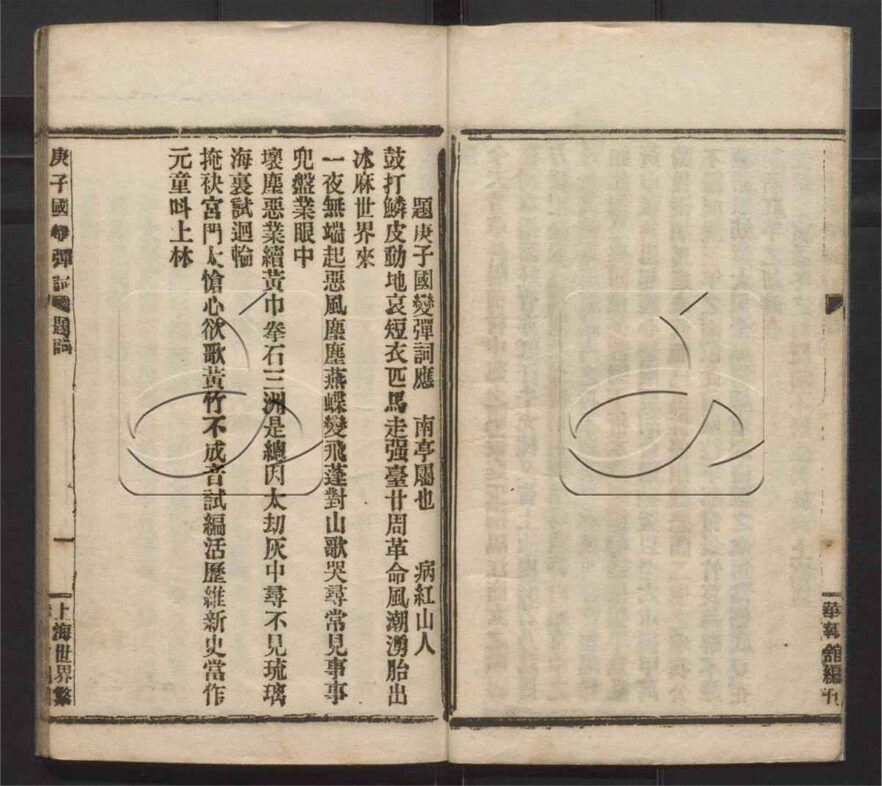 題庚子國變彈詞應 南亭屬也 病紅山人
鼓打鱗皮動地哀短衣匹馬走强臺廿周革命風潮湧胎出
冰麻世界來
一夜無端起惡風塵塵燕蝶變飛蓬對山歌哭尋常見事事
兜盤業眼中
壞塵惡業續黃巾拳石三洲是總因太刧灰中尋不見琉璃
海裏試迴輪
掩袂宮門太愴心欲歌黃竹不成音試編活歷維新史當作
元童呌上林
庚子國變彈詞 題詞
一
上海世界繁
華報館編刊